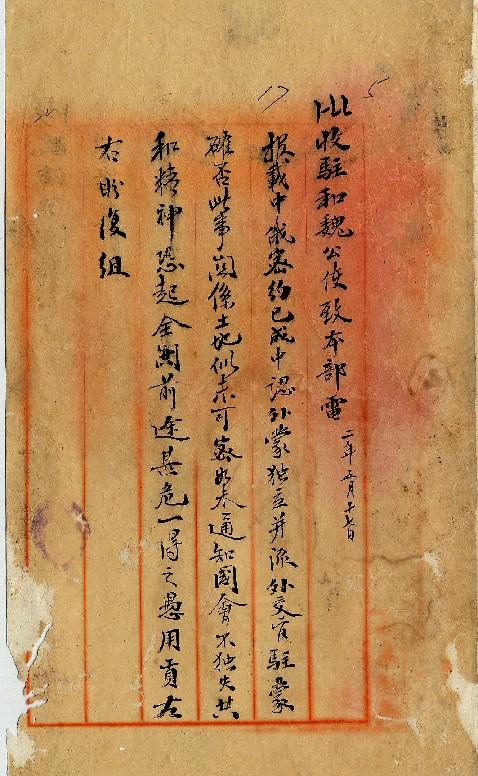 收駐和魏公使致本部電 二年五月十七日
報載中俄密約已成中認外蒙独立并派外交官駐蒙
確否此事関係土地似未可密如未通知國會不独失共
和精神恐起全国前途甚危一得之愚用貢左
右盼復組